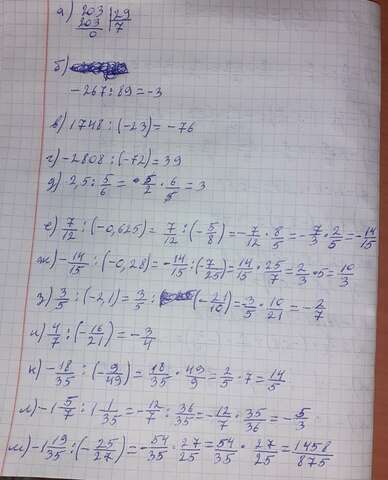 а) 203 | 29
203 7
0
б)
-267 : 89 = -3
в) 1748 : (-23) = -76
г) -2808 : (-72) = 39
д) 2,5 : 5/6 = 5/2 · 6/5 = 3
е) 7/12 : (-0,625) = 7/12 : (-5/8) = -7/12 · 8/5 = -7/3 · 2/5 = -14/15
ж) -14/15 : (-0,28) = -14/15 : (-7/25) = 14/15 · 25/7 = 2/3 · 5 = 10/3
з) 3/5 : (-2,1) = 3/5 : (-21/10) = -3/5 · 10/21 = -2/7
и) 4/7 : (-16/21) = -3/4
к) -18/35 : (-9/49) = 18/35 · 49/9 = 2/5 · 7 = 14/5
л) -1 5/7 : 1 1/35 = -12/7 : 36/35 = -12/7 · 35/36 = -5/3
м) -1 19/35 : (-25/27) = -54/35 · 27/25 = 54/35 · 27/25 = 1458/875